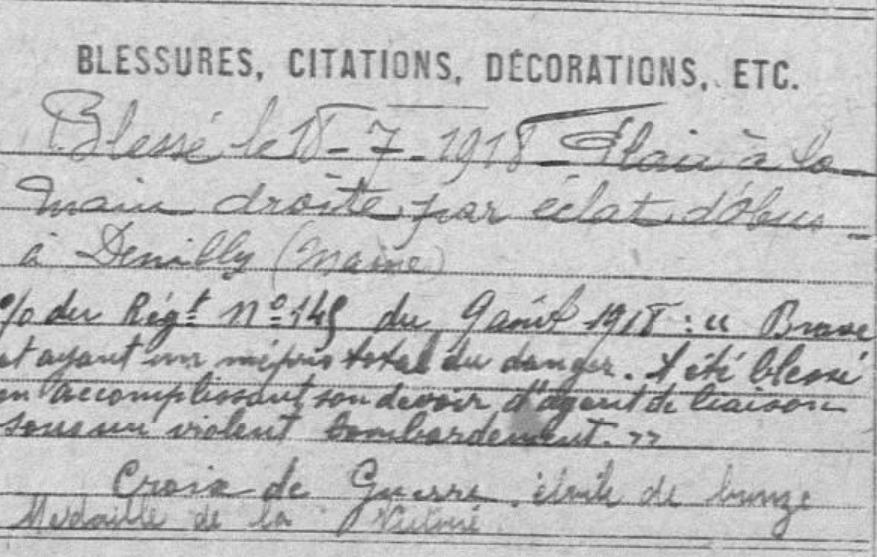 BLESSURES, CITATIONS, DÉCORATIONS, ETC.
Blessé le 18-7-1918 Plaie à la
main droite par éclat d'obus
à (Marne)
% du Régt nº 145 du 9 août 1918 : " Brave
et ayant un mépris total du danger. A été blessé
en accomplissant son devoir d'agent de liaison
sous un violent bombardement. "
Croix de Guerre étoile de bronze
Médaille de la Victoire